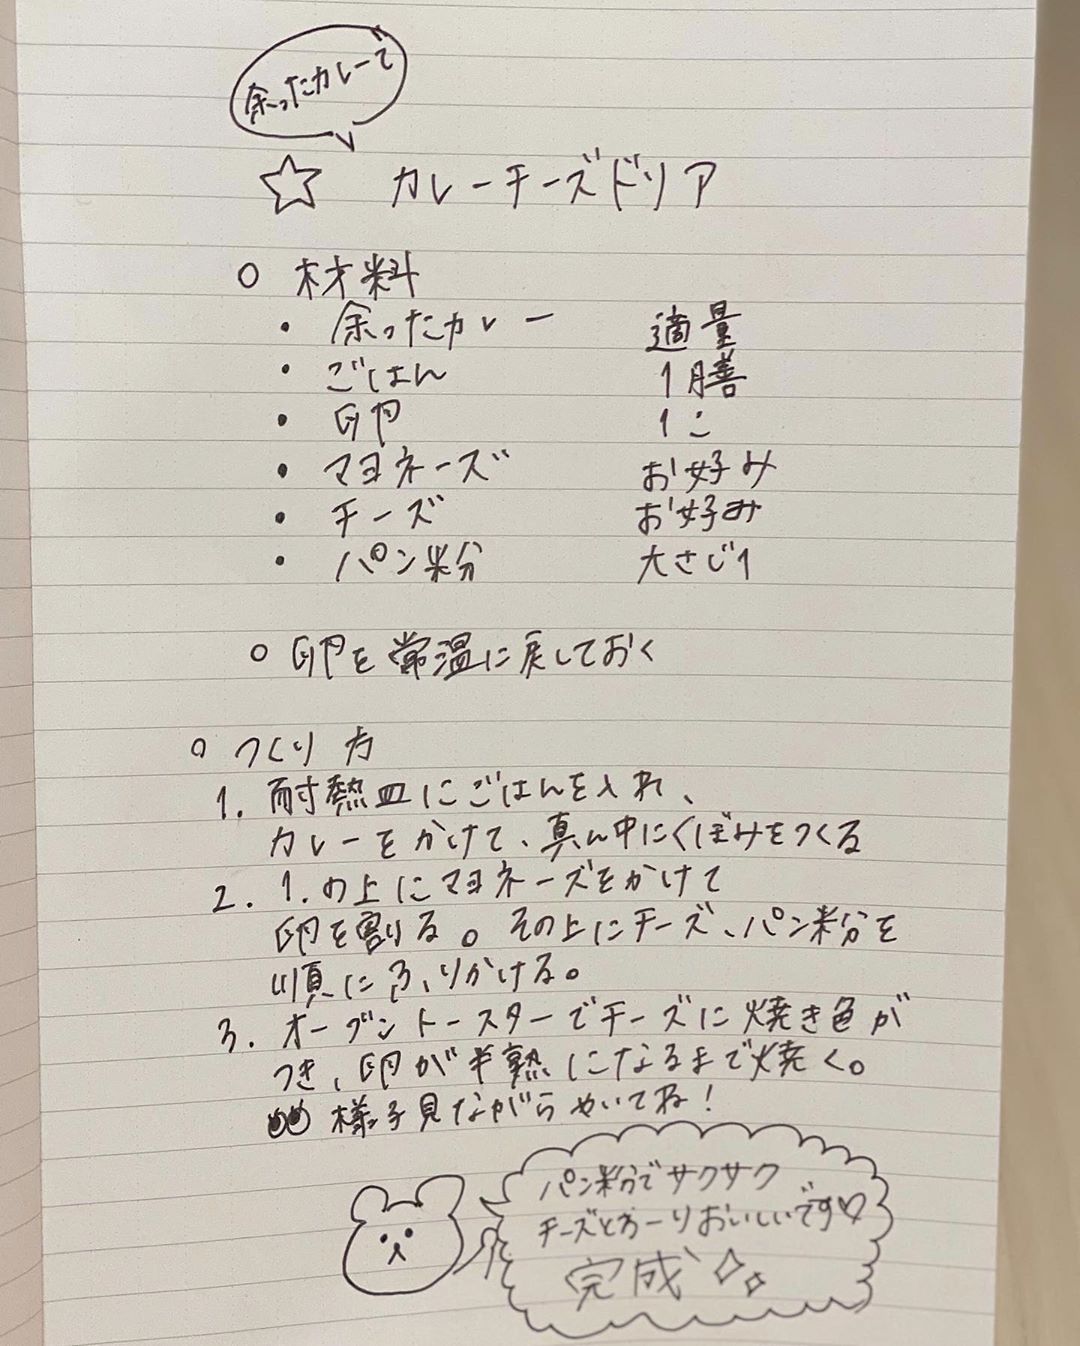 余ったカレーで
☆ カレーチーズドリア
○ 材料
・ 余ったカレー 適量
・ ごはん 1膳
・ 卵 1こ
・ マヨネーズ お好み
・ チーズ お好み
・ パン粉 大さじ1
○ 卵を常温に戻しておく
○ つくり方
1. 耐熱皿にごはんを入れ、
カレーをかけて、真ん中にくぼみをつくる
2. 1.の上にマヨネーズをかけて
卵を割る。その上にチーズ、パン粉を
順にふりかける。
3. オーブントースターでチーズに焼き色が
つき、卵が半熟になるまで焼く。
様子見ながらやいてね!
パン粉でサクサク
チーズとろーりおいしいです♡
完成